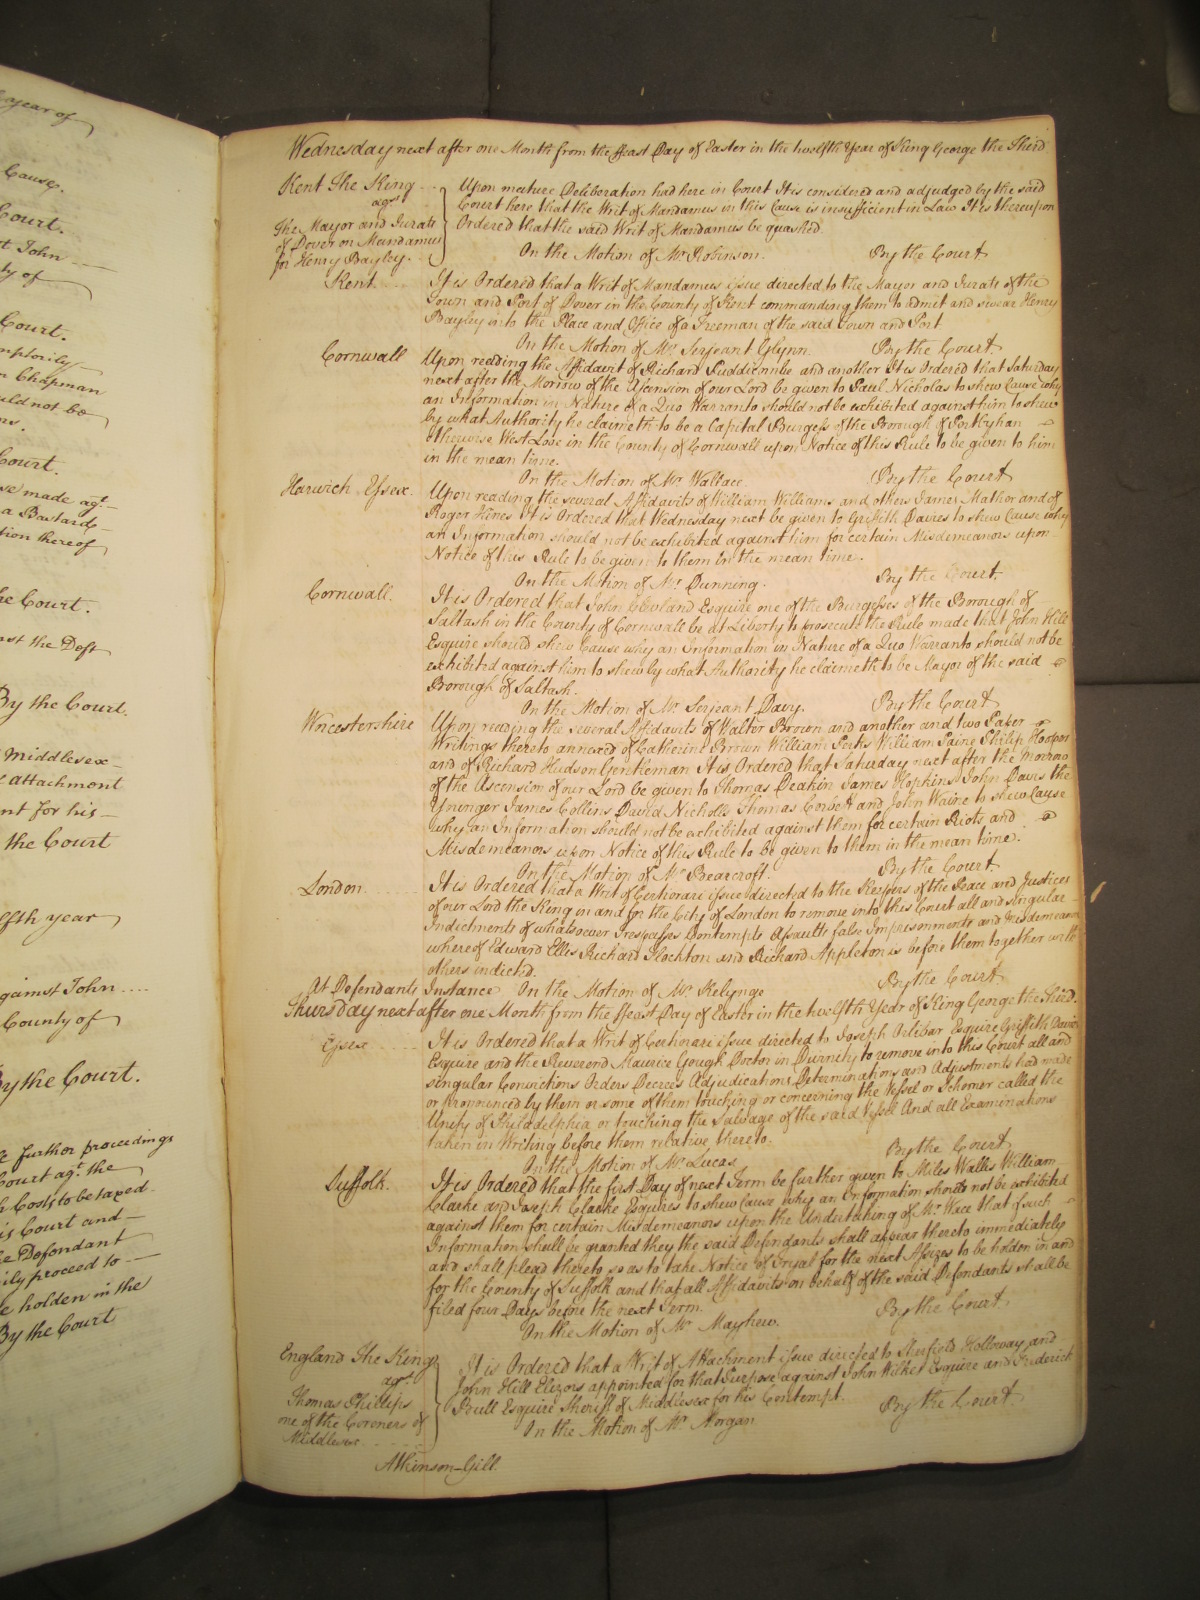 year of
Cause.
Court.
John
ty of
Court.
Chapman
uld not be
Court.
se made agt.
a Bastard
tion thereof
he Court.
nst the Deft
By the Court.
Middlesex
attachment
nt for his
the Court
lfth year
gainst John
County of
By the Court.
further proceedings
Court agt. the
Costs to be taxed
is Court and
he Defendant
ily proceed to
e holden in the
By the Court
Wednesday next after one Month from the ffeast Day of Easter in the twelfth Year of King George the Third
Kent The King
agt
The Mayor and Jurats
of Dover on Mandamus
for Henry Bayley.
Upon mature Deliberation had here in Court It is considered and adjudged by the said
Court here that the Writ of Mandamus in this Cause is insufficient in Law It is thereupon
Ordered that the said Writ of Mandamus be quashed
On the Motion of Mr. Robinson. By the Court
Kent It is Ordered that a Writ of Mandamus issue directed to the Mayor and Jurats of the
Town and Port of Dover in the County of Kent commanding them to admit and swear Henry
Bayley into the Place and Office of a Freeman of the said Town and Port
On the Motion of Mr. Serjeant Glynn. By the Court.
Cornwall Upon reading the Affidavit of Richard Puddicombe and another It is Ordered that Saturday
next after the Morrow of the Ascension of our Lord be given to Paul Nicholas to shew Cause why
an Information in Nature of a Quo Warranto should not be exhibited against him to shew
by what Authority he claimeth to be a Capital Burgess of the Borough of Portbyhan
Otherwise West Looe in the County of Cornwall upon Notice of this Rule to be given to him
in the mean time.
On the Motion of Mr. Wallace. By the Court
Harwich Essex. Upon reading the several Affidavits of William Williams and others James Mathor and of
Roger Hines It is Ordered that Wednesday next be given to Griffith Davies to shew Cause why
an Information should not be exhibited against him for certain Misdemeanors upon
Notice of this Rule to be given to them in the mean time.
On the Motion of Mr. Dunning. By the Court.
Cornwall. It is Ordered that John Cleveland Esquire one of the Burgesses of the Borough of
Saltash in the County of Cornwall be at Liberty to prosecute the Rule made that John Hill
Esquire should shew Cause why an Information in Nature of a Quo Warranto should not be
exhibited against him to shew by what Authority he claimeth to be Mayor of the said
Borough of Saltash.
On the Motion of Mr. Serjeant Davy. By the Court
Worcestershire Upon reading the several Affidavits of Walter Brown and another and two Paper
Writings thereto annexed of Catherine Brown William Perks William Paine Philip Hooper
and of Richard Hudson Gentleman It is Ordered that Saturday next after the Morrow
of the Ascension of our Lord be given to Thomas Deakin James Hopkins John Davis the
Younger James Collins David Nicholls Thomas Corbett and John Waine to shew Cause
why an Information should not be exhibited against them for certain Riots and
Misdemeanors upon Notice of this Rule to be given to them in the mean time.
On the Motion of Mr. Bearcroft. By the Court.
London. It is Ordered that a Writ of Certiorari issue directed to the Keepers of the Peace and Justices
of our Lord the King in and for the City of London to remove into this Court all and singular
Indictments of whatsoever Trespasses Contempts Assaults false Imprisonments and Misdemeanors
whereof Edward Ellis Richard Stockton and Richard Appleton is before them together with
others indicted.
At Defendants Instance On the Motion of Mr. Kelynge By the Court.
Thursday next after one Month from the ffeast Day of Easter in the twelfth Year of King George the Third.
Essex It is Ordered that a Writ of Certiorari issue directed to Joseph Orlibar Esquire Griffith Davies
Esquire and the Reverend Maurice Gough Doctor in Divinity to remove into this Court all and
singular Convictions Orders Decrees Adjudications Determinations and Adjustments had made
or pronounced by them or some of them touching or concerning the Vessel or Schooner called the
Unity of Philadelphia or touching the Salvage of the said Vessel And all Examinations
taken in Writing before them relative thereto.
On the Motion of Mr. Lucas By the Court
Suffolk. It is Ordered that the first Day of next Term be further given to Miles Wallis William
Clarke and Joseph Clarke Esquires to shew Cause why an Information should not be exhibited
against them for certain Misdemeanors upon the Undertaking of Mr. Wace that if such
Information shall be granted they the said Defendants shall appear thereto immediately
and shall plead thereto so as to take Notice of Tryal for the next Assizes to be holden in and
for the County of Suffolk and that all Affidavits on behalf of the said Defendants shall be
filed four Days before the next Term.
On the Motion of Mr. Mayhew. By the Court.
England The King
agt
Thomas Phillips
one of the Coroners of
Middlesex
It is Ordered that a Writ of Attachment issue directed to Sheefield Holloway and
John Hill Elizors appointed for that Purpose against John Wilkes Esquire and Frederick
Bull Esquire Sheriff of Middlesex for his Contempt.
On the Motion of Mr. Morgan By the Court
Atkinson-Gill.